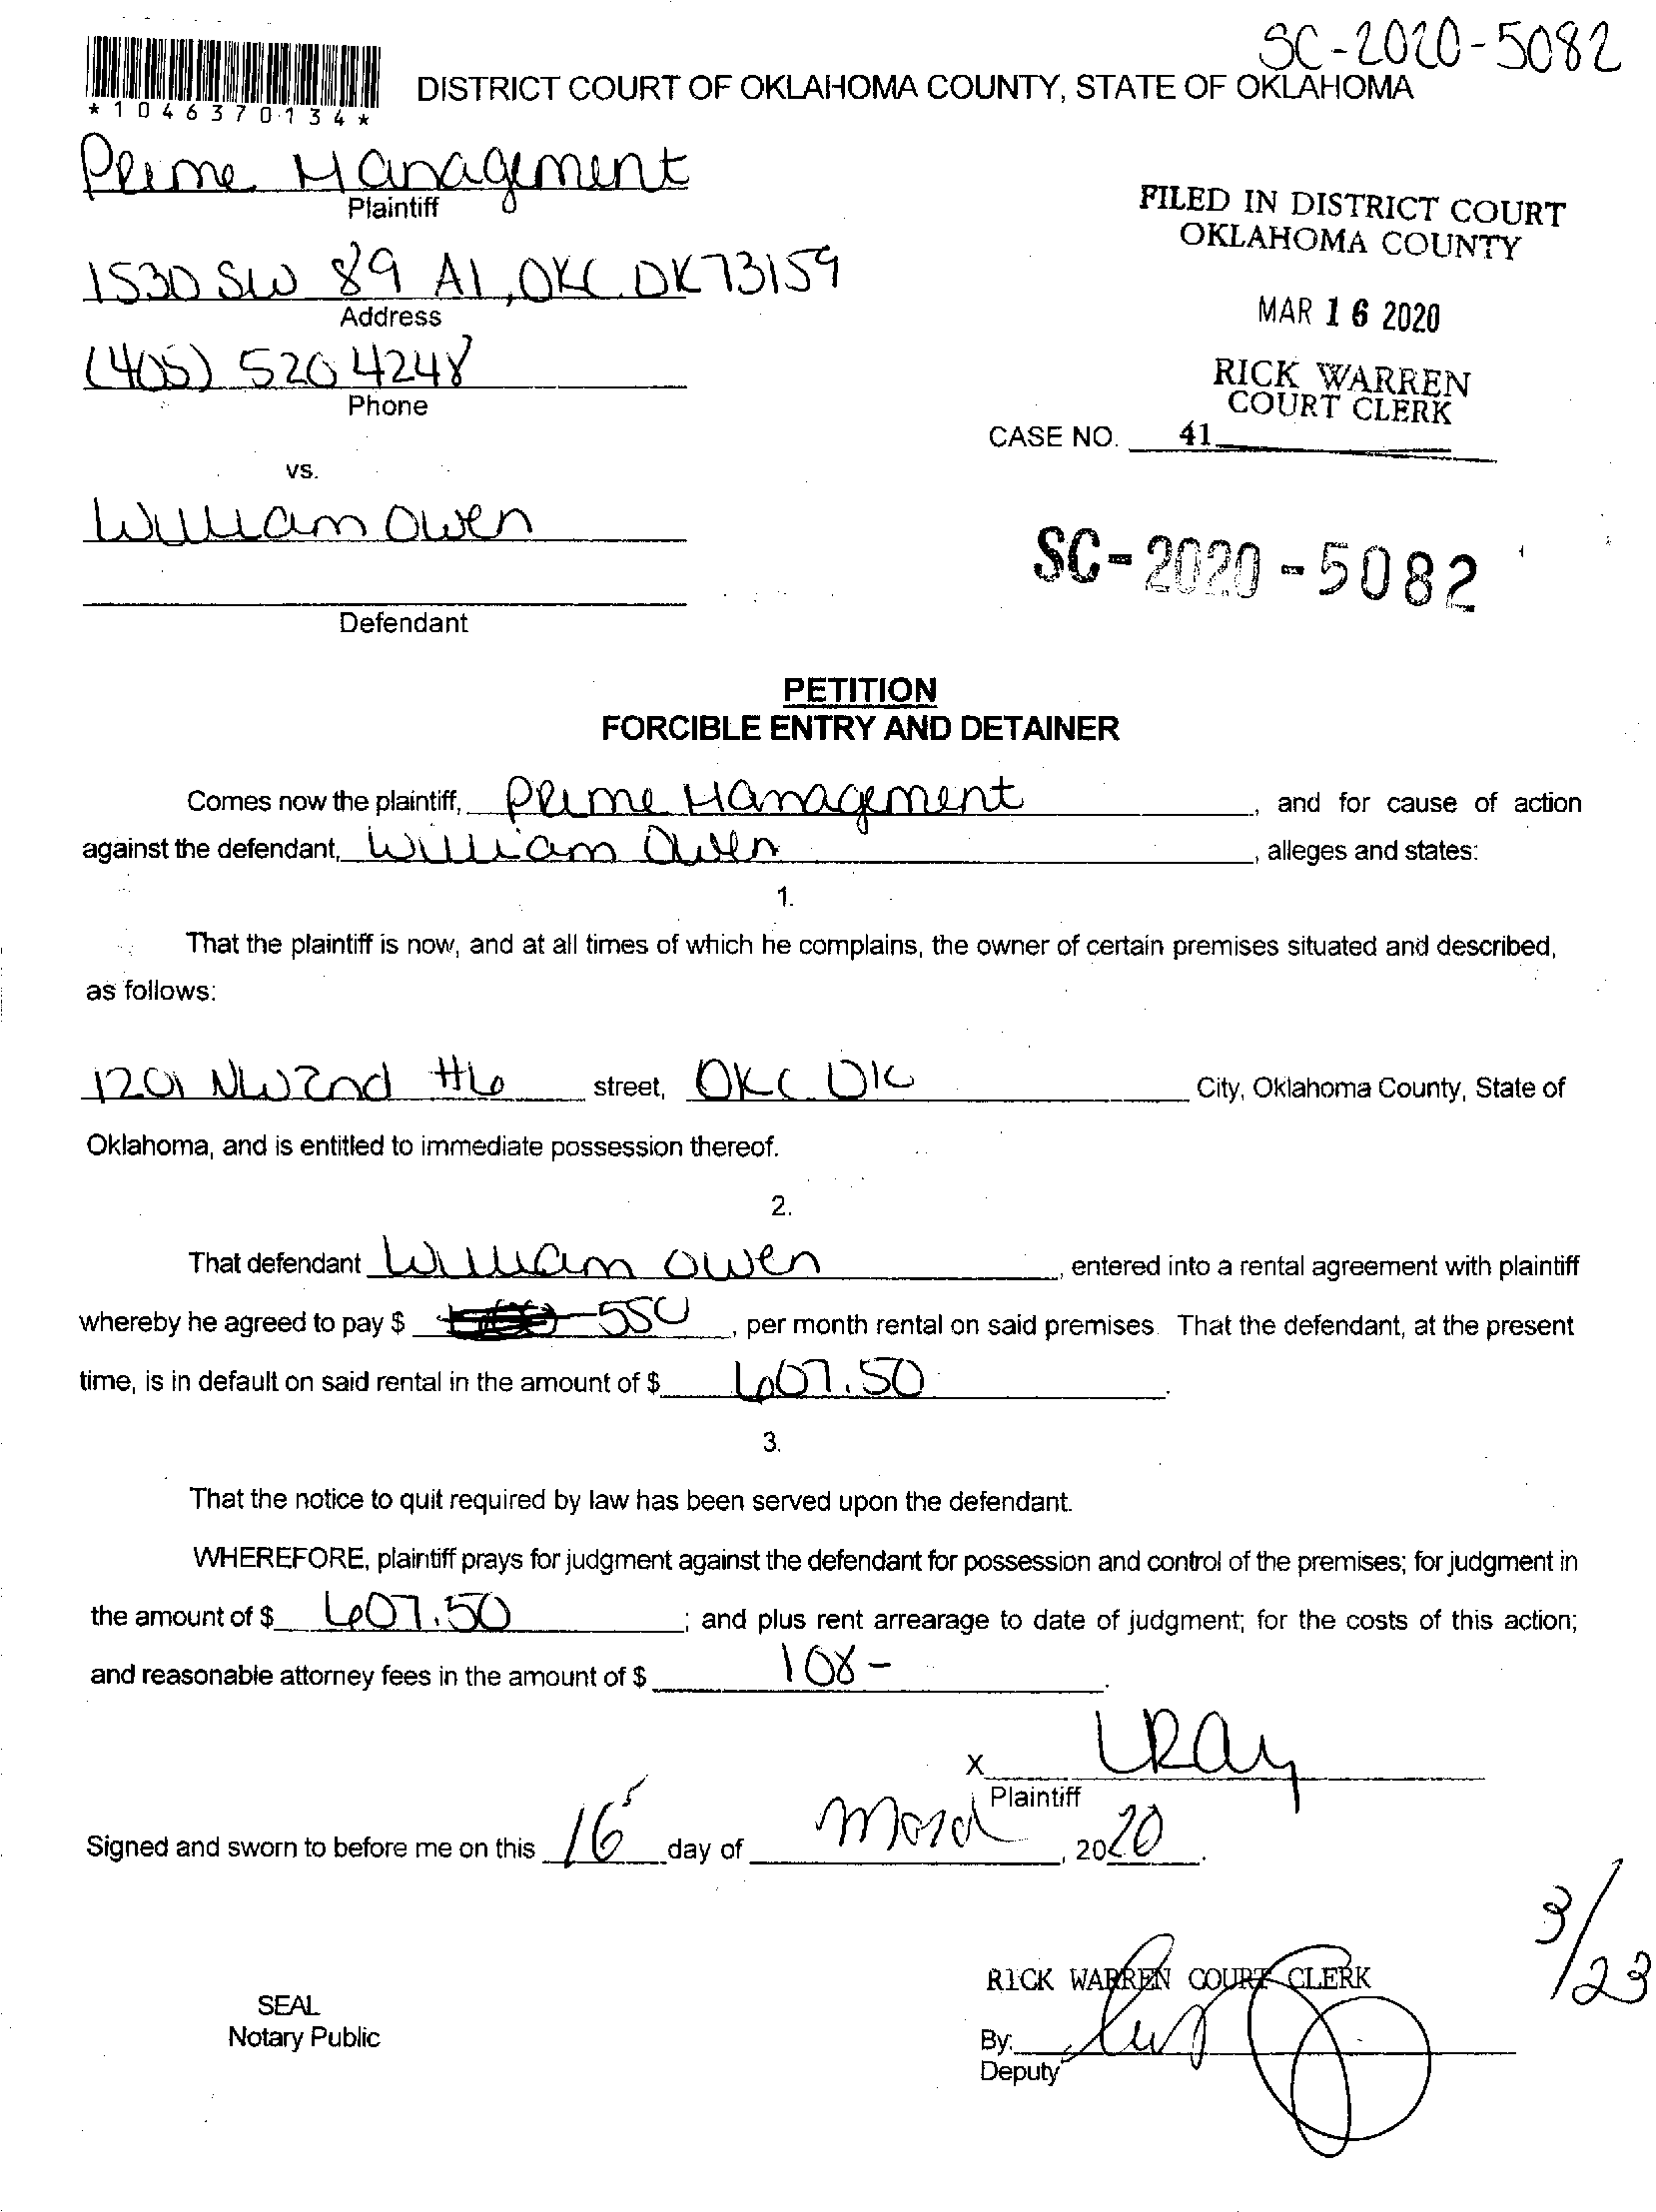 SC-2020-5082
*1046370134*
DISTRICT COURT OF OKLAHOMA COUNTY, STATE OF OKLAHOMA
Prime Management
Plaintiff
1530 SW 89 A1, OKC OK 73159
Address
(405) 520 4248
Phone
FILED IN DISTRICT COURT
OKLAHOMA COUNTY
MAR 16 2020
RICK WARREN
COURT CLERK
CASE NO. 41
vs.
William Owen
Defendant
SC-2020-5082
PETITION
FORCIBLE ENTRY AND DETAINER
Comes now the plaintiff, Prime Management, and for cause of action
against the defendant, William Owen, alleges and states:
1.
That the plaintiff is now, and at all times of which he complains, the owner of certain premises situated and described,
as follows:
1201 NW 2nd #6 street, OKC OK City, Oklahoma County, State of
Oklahoma, and is entitled to immediate possession thereof.
2.
That defendant William Owen, entered into a rental agreement with plaintiff
whereby he agreed to pay $ 550, per month rental on said premises. That the defendant, at the present
time, is in default on said rental in the amount of $ 607.50.
3.
That the notice to quit required by law has been served upon the defendant.
WHEREFORE, plaintiff prays for judgment against the defendant for possession and control of the premises; for judgment in
the amount of $ 607.50; and plus rent arrearage to date of judgment; for the costs of this action;
and reasonable attorney fees in the amount of $ 108-.
X LRay
Plaintiff
Signed and sworn to before me on this 16 day of March, 2020.
3/23
RICK WARREN COURT CLERK
SEAL
Notary Public
By:
Deputy